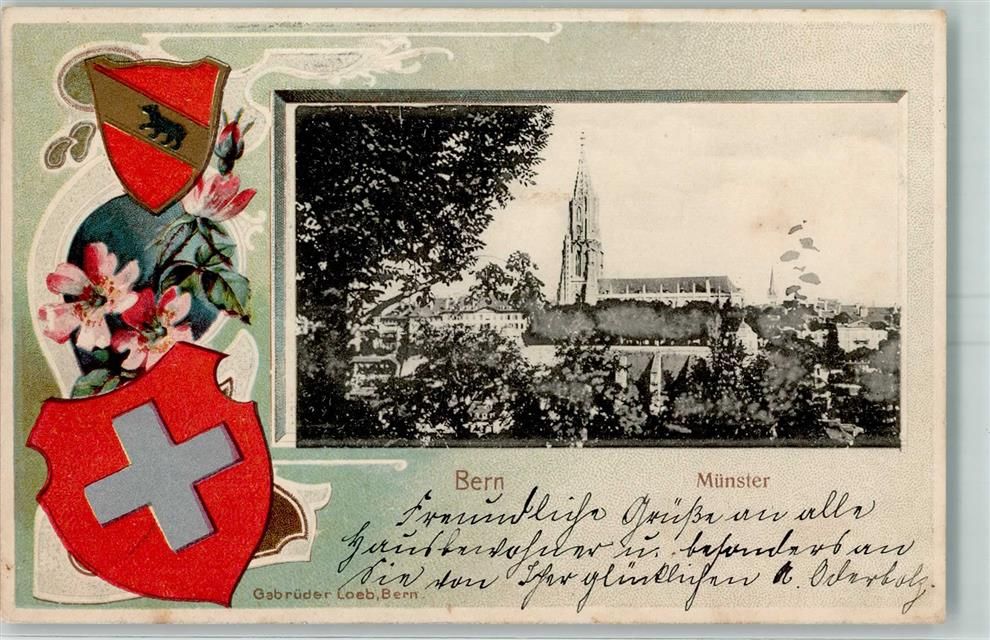 Bern Münster
Freundliche Grüße an alle
Hausbewohner u. besonders an
Sie von Ihrer glücklichen A. Oderbolz.
Gebrüder Loeb, Bern.